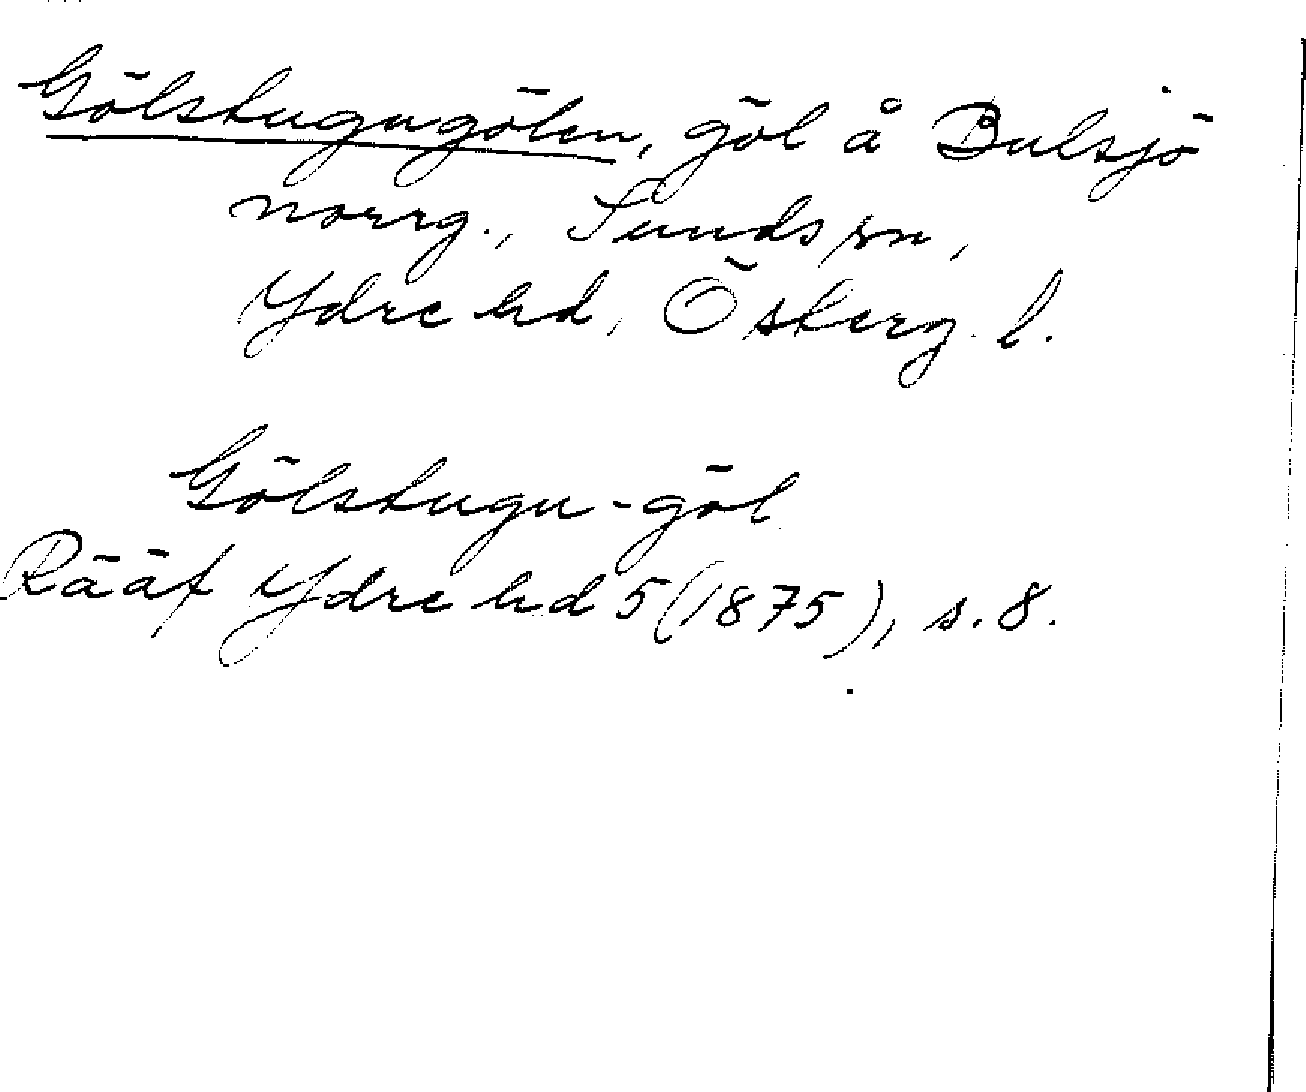 Gölstugugölen, göl å Bulsjö
norrg., Sunds sn,
Ydre hd, Österg. l.
Gölstugu-göl
Rääf Ydre hd 5 (1875), s. 8.